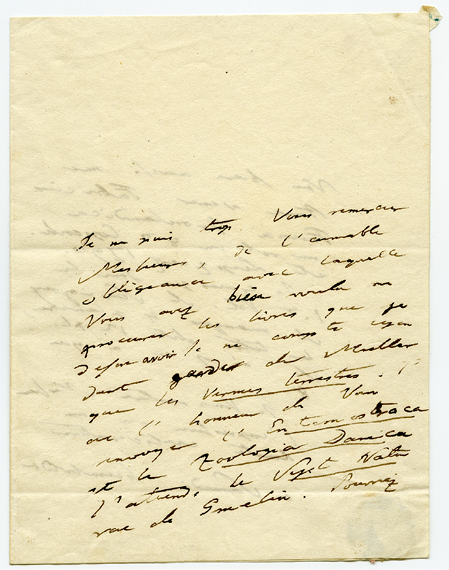 Je ne puis trop Vous remercier
Messieurs, de l'aimable
obligeance avec laquelle
Vous avez bien voulu me
procurer les livres que je
desire avoir. Je ne compte cepen
dant garder de Mueller
que les Vermes terrestres. J'
ai l'honneur de Vous
renvoyer l'Entomostraca
et la Zoologia Danica
J'attends le Syst Natu
rae de Gmelin. Pourriez